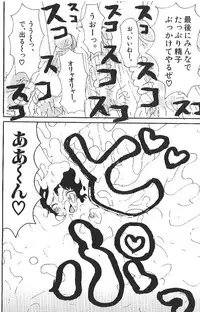 最後にみんなで
たっぷり精子
ぶっかけてやるぜ♡
スコ
スコ
スコ
おっ、いいねー。
うおーっ
オリャオリャー!
スコ
スコ
スコ
うう〜っ
で、出る〜っ♡
どぷっ
ああ〜ん♡